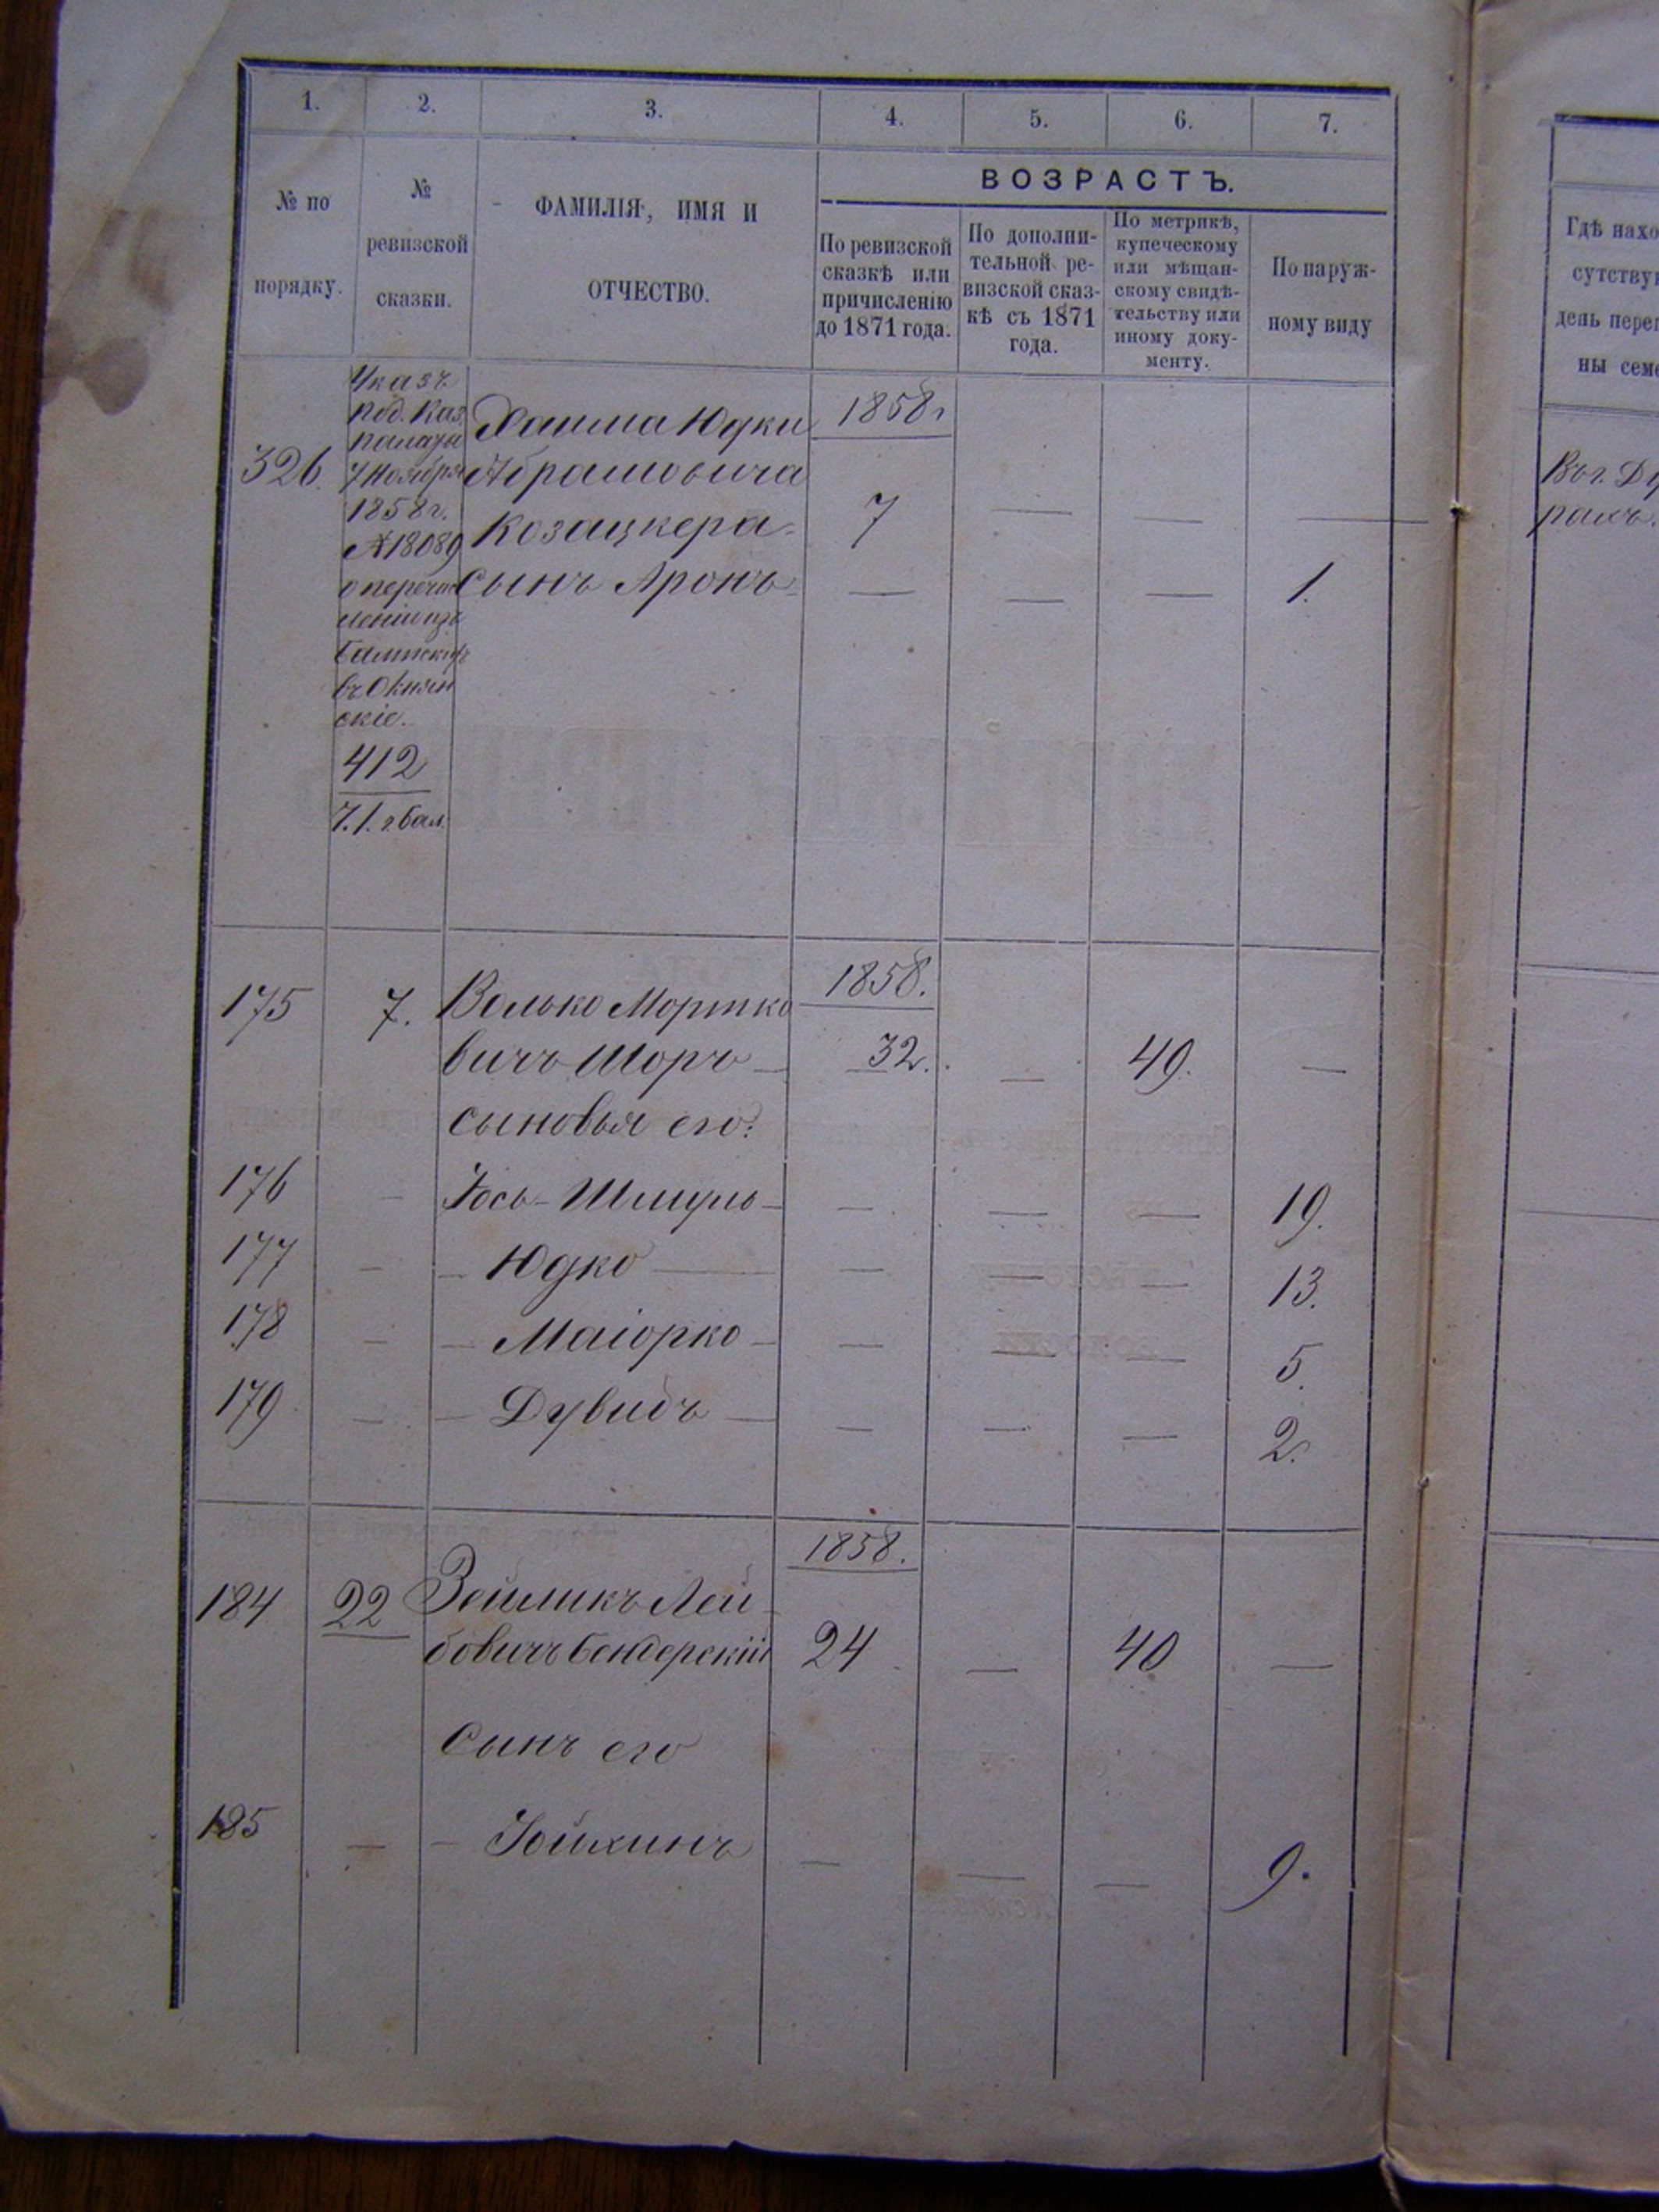 1.
2.
3.
4.
5.
6.
7.
№ по
порядку.
№
ревизской
сказки.
ФАМИЛІЯ, ИМЯ И
ОТЧЕСТВО.
ВОЗРАСТЪ.
По ревизской
сказкѣ или
причисленію
до 1871 года.
По дополни-
тельной ре-
визской сказ-
кѣ съ 1871
года.
По метрикѣ,
купеческому
или мѣщан-
скому свидѣ-
тельству или
иному доку-
менту.
По наруж-
ному виду
326.
Указъ
под. Каз.
палаты
7 Ноября
1858 г.
№ 18089
о перечис
леніи изъ
балтскихъ
въ Окнян
скіе.
412
7.1. г. бал.
Хаима Юдки
Абрамовича
Козацкера
сынъ Аронъ
1858 г
7
—
—
—
—
—
—
—
—
—
1.
175
7.
Волько Мортко
вичъ Шоръ —
1858.
32.
—
49.
—
сыновья его:
176
—
Іось-Шмуль —
—
—
—
19.
177
—
— Юдко —
—
—
—
13.
178
—
— Маіорко —
—
—
—
5.
179
—
— Дувидъ —
—
—
—
2.
184
22
Зейликъ Лей-
бовичъ Бендерскій
1858.
24
—
40
—
сынъ его
185
—
— Іойхинъ
—
—
—
9.
Гдѣ нахо
сутству
день пере
ны сем
Въ г. Ду
рахъ.